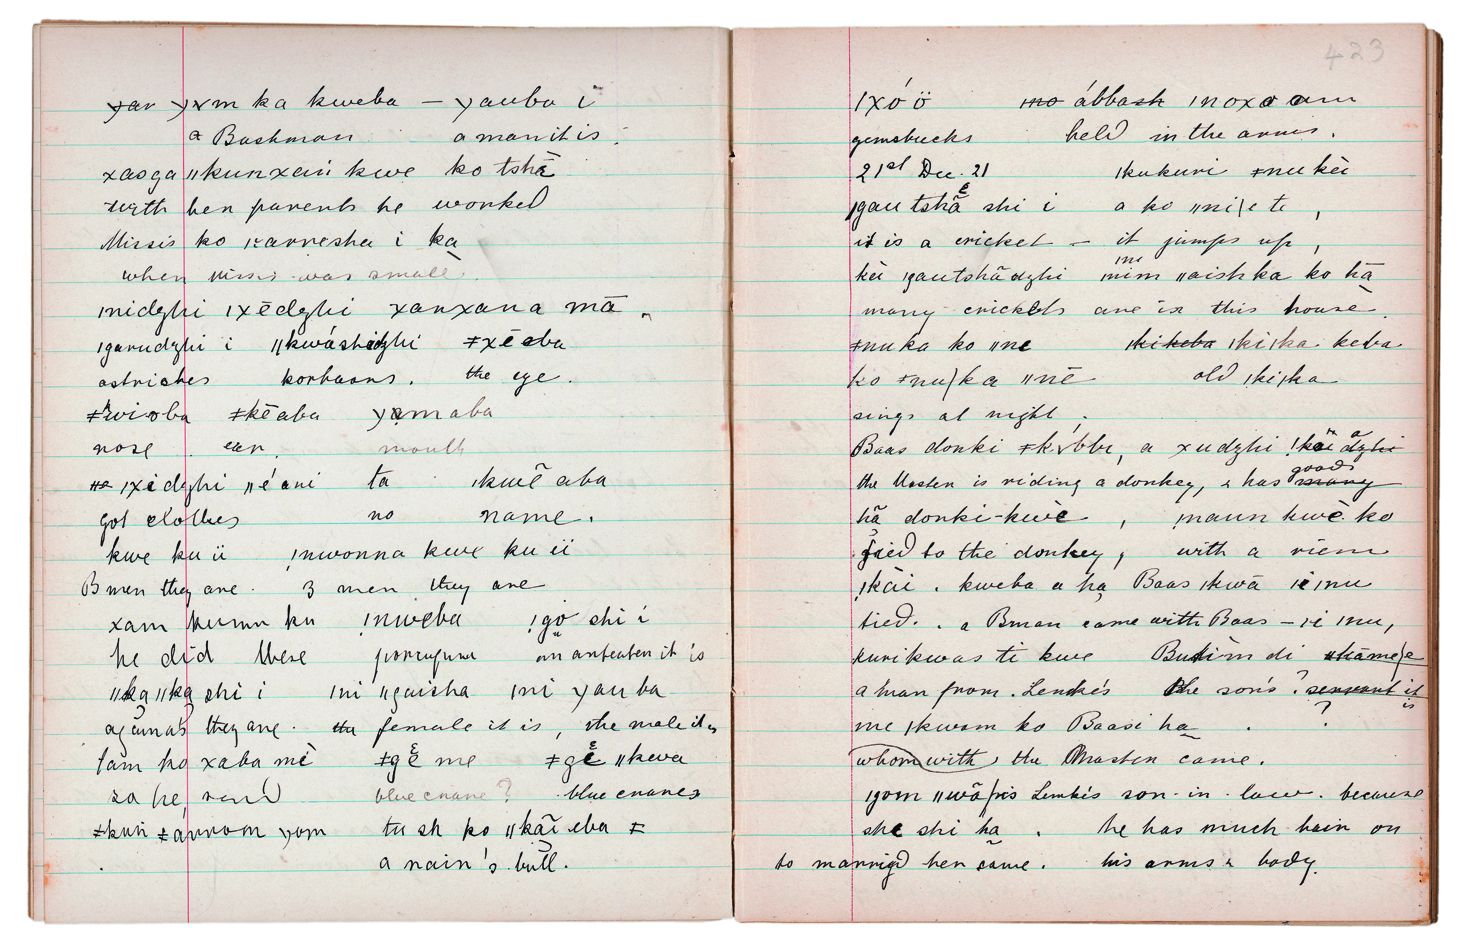 ɣar ɣɤm ka kweba — ɣauba i
a Bushman a man it is.
xasga ǁkunxaiï kwe ko tshã
with her parents he worked
Missis ko karresha i ka
when missis was small.
ǀnidzhi ǀxēdzhi xanxana mā
ǀgarudzhi i ǁkwáshidzhi ǂxēeba
ostriches korhaans. the eye.
ǂwisba ǂkēaba ɣamaba
nose. ear. mouth
ǀxedzhi ǁéani ta ǀkwẽ aba
got clothes no name.
kwe ku ii ǃnwonna kwe ku ii
Bmen they are. 3 men they are
xam kumu ku ǃnweba ǃgo shi i
he did these porcupine an anteater it is
ǁkaǁka shi i ǀni ǁgaisha ǀni ɣauba
agamas they are. the female it is, the male it is
tam ko xaba mē ǂgē me ǂgē ǁkwa
so he said blue crane? blue cranes
ǂkuri ǂárrom ɣom tu sh ko ǁkãi eba ǂ
a rain's bull.
423
ǀxóö ǀno ábbash ǀnoxa am
gemsbucks held in the arms.
21st Dec. 21 ǀkukuri ǂnu kēi
ǀgautshã shi i a ko ǁniǀe te,
it is a cricket — it jumps up,
kēi ǀgautshãdzhi mim ǁaishka ko hã
many crickets are in this house.
ǂnuka ko ǁne ǀkikeba ǀkiǀka keba
ko ǂnuǀka ǁnē old ǀkiǀka
sings at night.
Baas donki ǂkóbbe, a xudzhi ǃkai dzhi
the Master is riding a donkey, & has many goods
hã donki-kwē, ǃnaun kwē ko
tied to the donkey, with a riem
ǃkāi. kweba a ha Baas ǀkwā ié mu
tied. . a Bman came with Baas — ié mu,
kurikwas ti kwe Busim di shāmeǀe
a man from. Lenke's the son's? servant it is
me ǀkwam ko Baasi ha . ?
whom with, the Master came.
ǀgom ǁwā pis Lenkés son-in-law. because
she shi ha . he has much hair on
to marrigd her came. his arms & body.